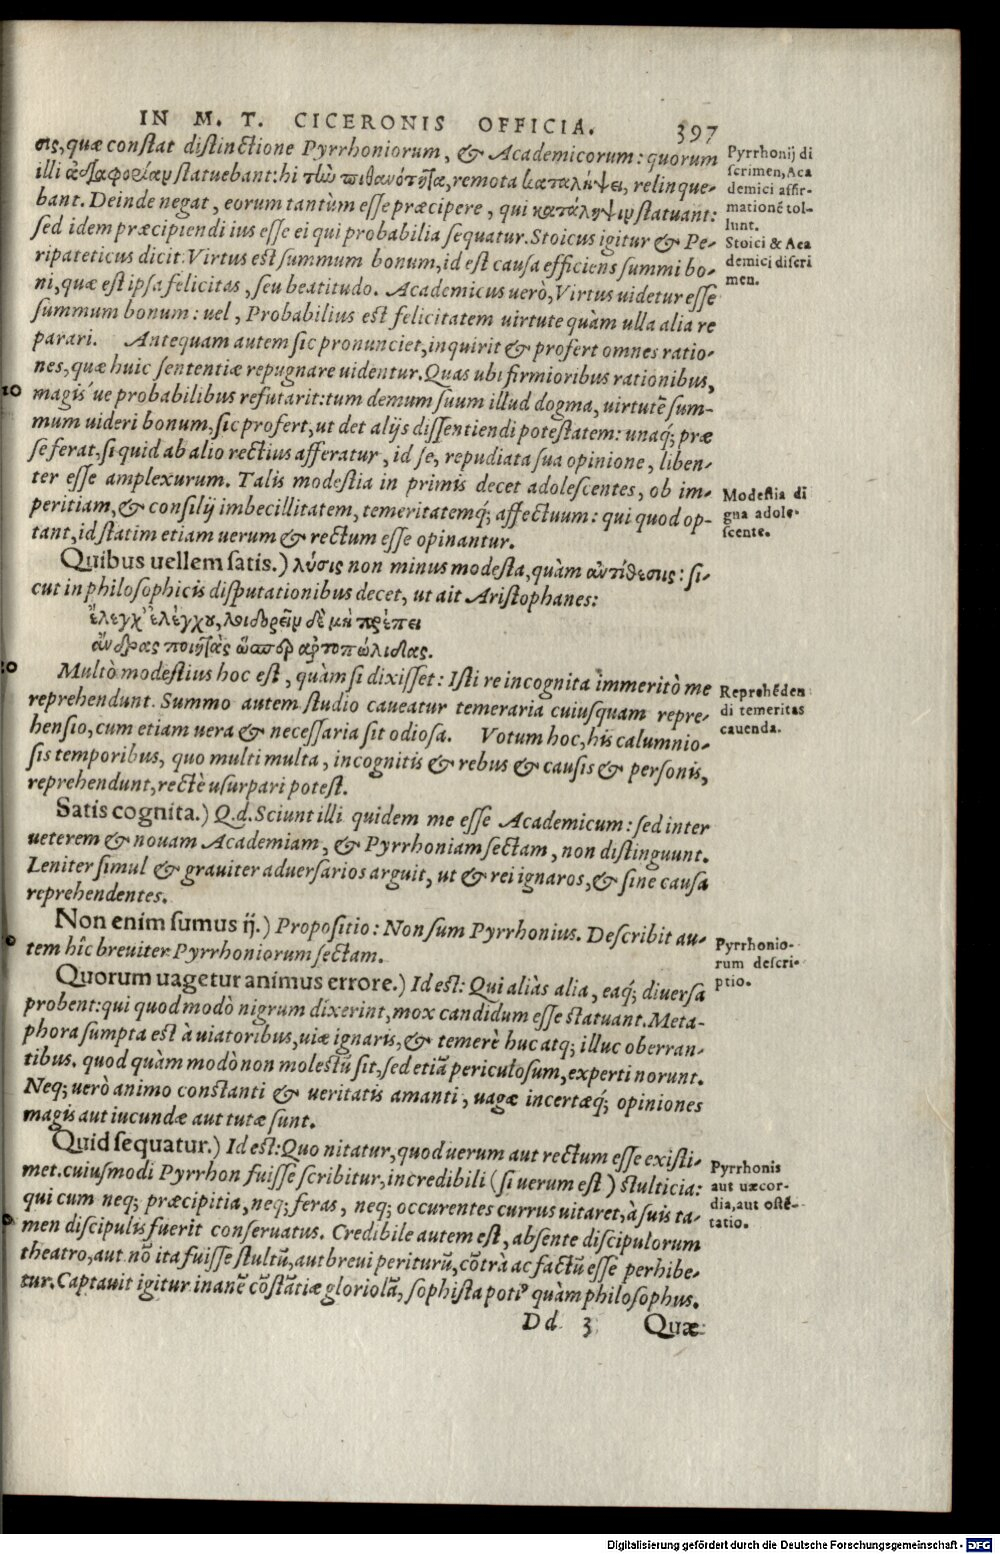 IN M. T. CICERONIS OFFICIA. 397
σις, quæ constat distinctione Pyrrhoniorum, & Academicorum: quorum
illi ἀδιαφορίαν statuebant: hi τὴν πιθανότητα, remota καταλήψει, relinque-
bant. Deinde negat, eorum tantùm esse præcipere, qui κατάληψιν statuant:
sed idem præcipiendi ius esse ei qui probabilia sequatur. Stoicus igitur & Pe-
ripateticus dicit. Virtus est summum bonum, id est causa efficiens summi bo-
ni, quæ est ipsa felicitas, seu beatitudo. Academicus uerò, Virtus uidetur esse
summum bonum: uel, Probabilius est felicitatem uirtute quàm ulla alia re
parari. Antequam autem sic pronunciet, inquirit & profert omnes ratio-
nes, quæ huic sententiæ repugnare uidentur. Quas ubi firmioribus rationibus,
magis'ue probabilibus refutarit: tum demum suum illud dogma, uirtutẽ sum-
mum uideri bonum, sic profert, ut det alijs dissentiendi potestatem: unaq́; præ
se ferat, si quid ab alio rectius afferatur, id se, repudiata sua opinione, liben-
ter esse amplexurum. Talis modestia in primis decet adolescentes, ob im-
peritiam, & consilij imbecillitatem, temeritatemq́; affectuum: qui quod op-
tant, id statim etiam uerum & rectum esse opinantur.
Quibus uellem satis.) λύσις non minus modesta, quàm ἀντίθεσις: si-
cut in philosophicis disputationibus decet, ut ait Aristophanes:
ἔλεγχ' ἐλέγχου, λοιδορεῖν δὲ μὴ πρέπει
ἄνδρας ποιητὰς ὥσπερ ἀρτοπώλιδας.
Multò modestius hoc est, quàm si dixisset: Isti re incognita immeritò me
reprehendunt. Summo autem studio caueatur temeraria cuiusquam repre-
hensio, cum etiam uera & necessaria sit odiosa. Votum hoc, his calumnio-
sis temporibus, quo multi multa, incognitis & rebus & causis & personis,
reprehendunt, rectè usurpari potest.
Satis cognita.) Q.d. Sciunt illi quidem me esse Academicum: sed inter
ueterem & nouam Academiam, & Pyrrhoniam sectam, non distinguunt.
Leniter simul & grauiter aduersarios arguit, ut & rei ignaros, & sine causa
reprehendentes.
Non enim sumus ij.) Propositio: Non sum Pyrrhonius. Describit au-
tem hîc breuiter Pyrrhoniorum sectam.
Quorum uagetur animus errore.) Id est: Qui aliàs alia, eaq́; diuersa
probent: qui quod modò nigrum dixerint, mox candidum esse statuant. Meta-
phora sumpta est à uiatoribus, uiæ ignaris, & temerè huc atq; illuc oberran-
tibus. quod quàm modò non molestũ sit, sed etiã periculosum, experti norunt.
Neq; uerò animo constanti & ueritatis amanti, uagæ incertæq́; opiniones
magis aut iucundæ aut tutæ sunt.
Quid sequatur.) Id est: Quo nitatur, quod uerum aut rectum esse existi-
met. cuiusmodi Pyrrhon fuisse scribitur, incredibili (si uerum est) stulticia:
qui cum neq; præcipitia, neq; feras, neq; occurentes currus uitaret, à suis ta-
men discipulis fuerit conseruatus. Credibile autem est, absente discipulorum
theatro, aut nõ ita fuisse stultũ, aut breui periturũ, cõtrà ac factũ esse perhibe-
tur. Captauit igitur inanẽ cõstãtiæ gloriolã, sophista potiꝰ quàm philosophus.
Dd 3 Quæ
Pyrrhonij di
scrimen, Aca
demici affir-
mationẽ tol-
lunt.
Stoici & Aca
demici discri
men.
Modestia di
gna adole-
scente.
Reprehẽden
di temeritas
cauenda.
Pyrrhonio-
rum descri-
ptio.
Pyrrhonis
aut uæcor-
dia, aut ostẽ-
tatio.
10
20
Digitalisierung gefördert durch die Deutsche Forschungsgemeinschaft - DFG